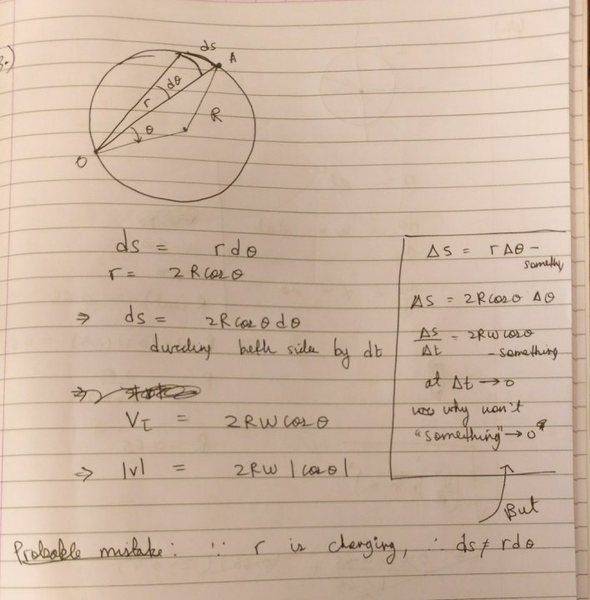 3.)
ds
A
dθ
r
R
θ
O
ds = r dθ
r = 2 R cos θ
⇒ ds = 2R cos θ dθ
dividing both side by dt
⇒
V_τ = 2 R W cos θ
⇒ |v| = 2 R W | cos θ |
Δs = r Δθ -
somethg
Δs = 2 R cos θ Δθ
Δs/Δt = 2RW cos θ
- something
at Δt → 0
why won't
"something" → 0?
But
Probable mistake : ∵ r is changing, ∴ ds ≠ r dθ